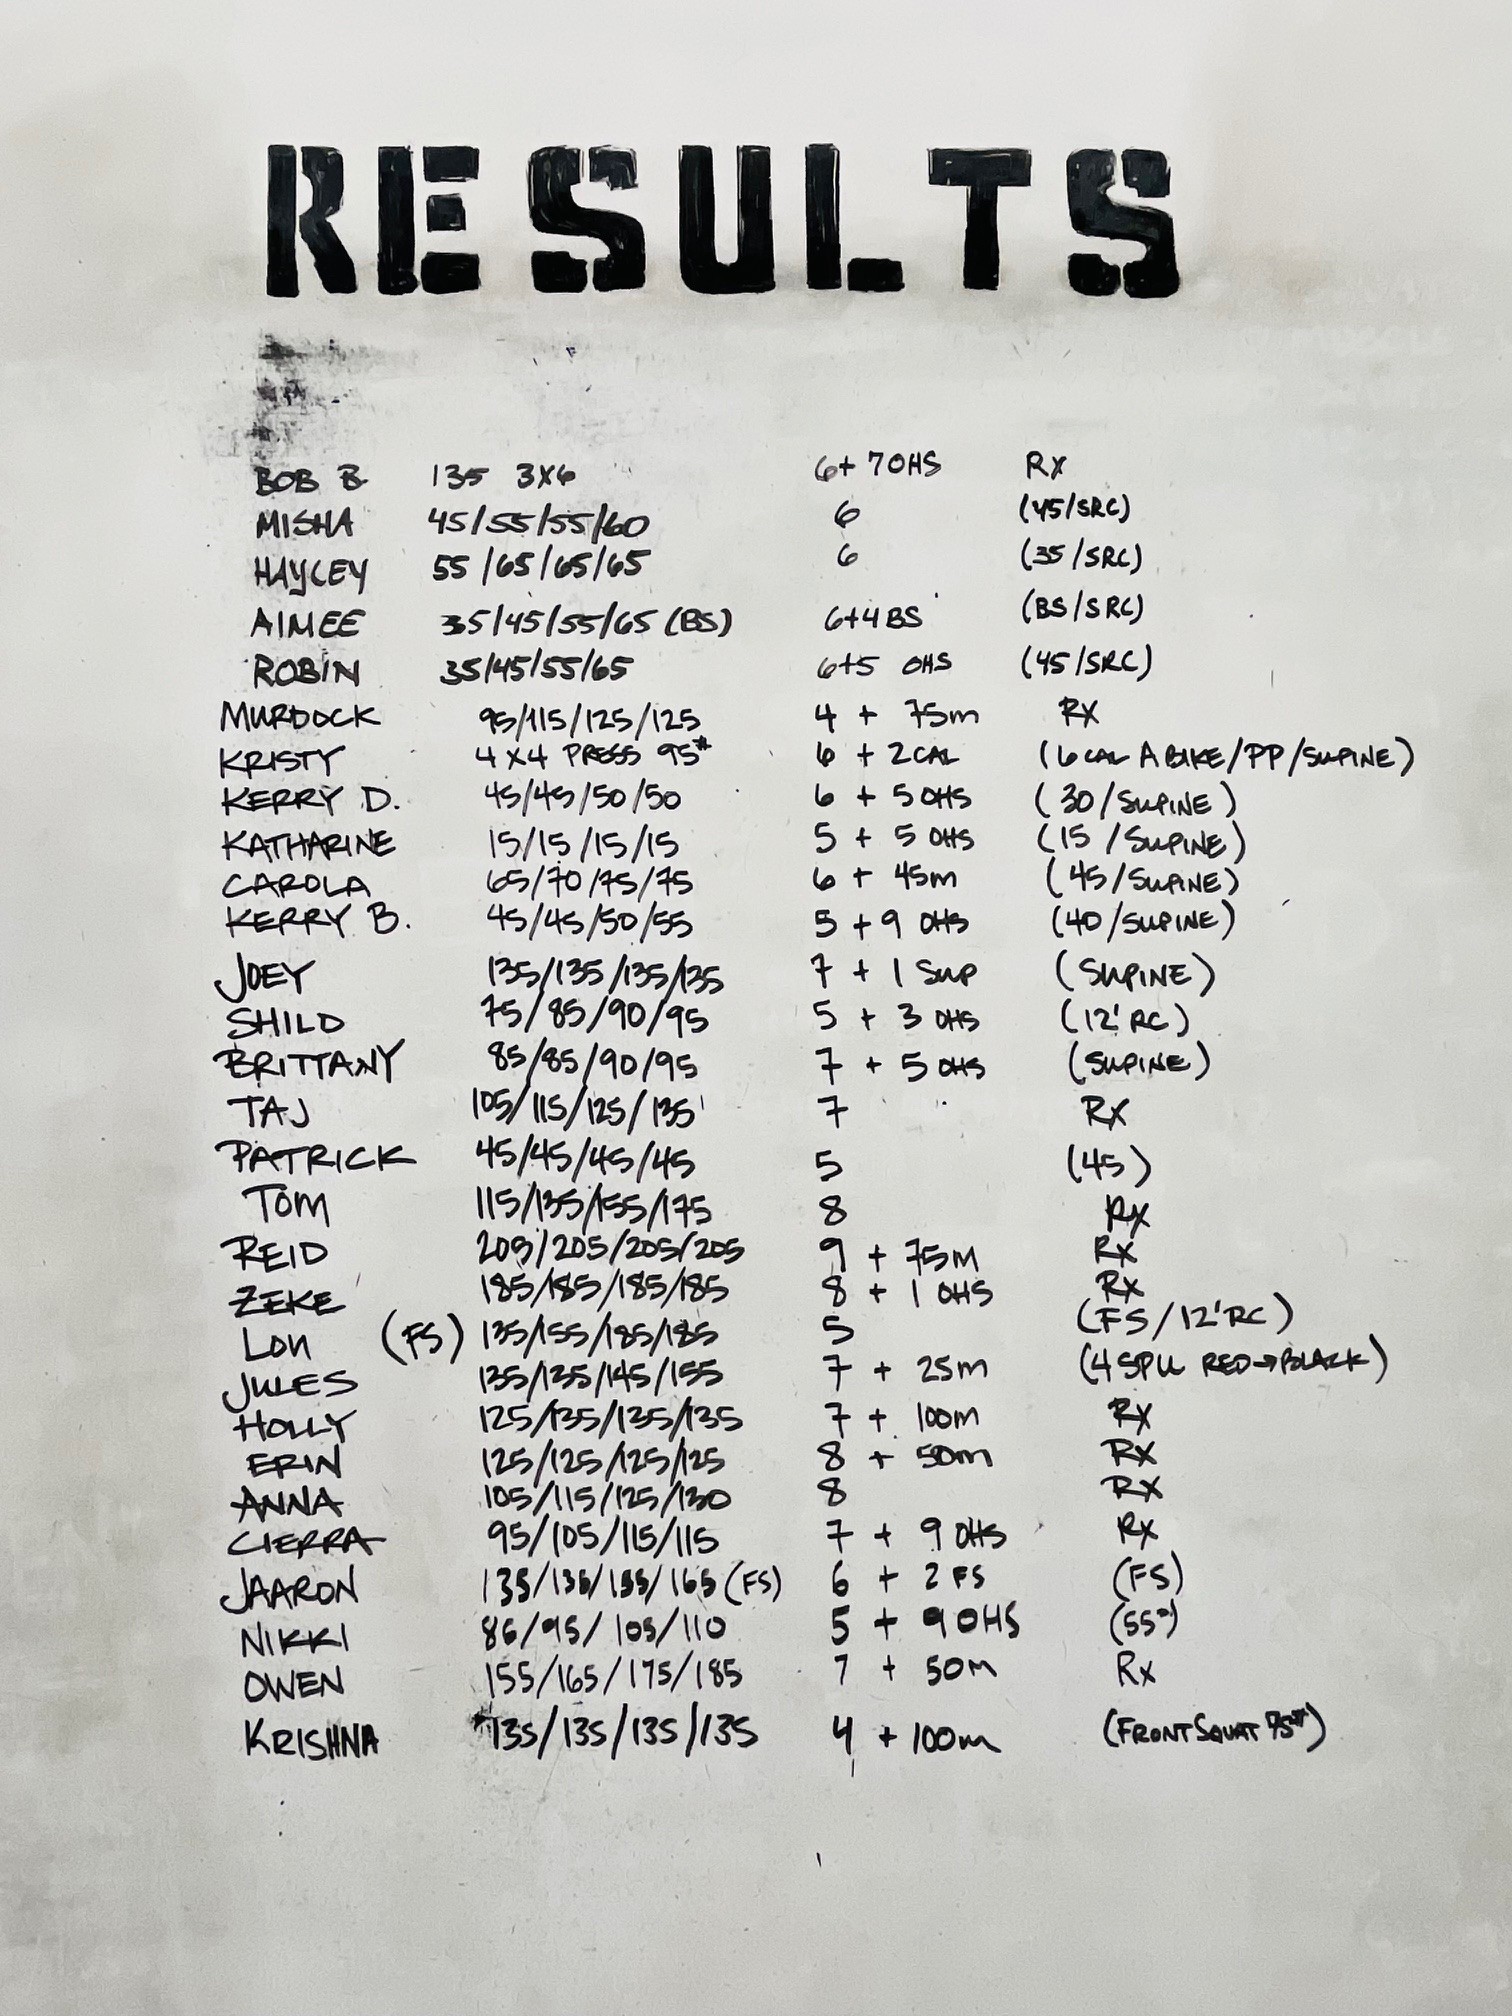 RESULTS
BOB B 135 3X6 6+ 7 OHS RX
MISHA 45/55/55/60 6 (45/SRC)
HAYLEY 55/65/65/65 6 (35/SRC)
AIMEE 35/45/55/65 (BS) 6+4 BS (BS/SRC)
ROBIN 35/45/55/65 6+5 OHS (45/SRC)
MURDOCK 95/115/125/125 4 + 75m RX
KRISTY 4 X 4 PRESS 95# 6 + 2 CAL (6 CAL A BIKE/PP/SUPINE)
KERRY D. 45/45/50/50 6 + 5 OHS (30/SUPINE)
KATHARINE 15/15/15/15 5 + 5 OHS (15/SUPINE)
CAROLA 65/70/75/75 6 + 45m (45/SUPINE)
KERRY B. 45/45/50/55 5 + 9 OHS (40/SUPINE)
JOEY 135/135/135/135 7 + 1 SUP (SUPINE)
SHILO 75/85/90/95 5 + 3 OHS (12' RC)
BRITTANY 85/85/90/95 7 + 5 OHS (SUPINE)
TAJ 105/115/125/135 7 RX
PATRICK 45/45/45/45 5 (45)
TOM 115/135/155/175 8 RX
REID 205/205/205/205 9 + 75m RX
ZEKE 185/185/185/185 8 + 1 OHS RX
LON (FS) 135/155/185/185 5 (FS/12' RC)
JULES 135/135/145/155 7 + 25m (4 SPU RED→BLACK)
HOLLY 125/135/135/135 7 + 100m RX
ERIN 125/125/125/125 8 + 50m RX
ANNA 105/115/125/130 8 RX
CIERRA 95/105/115/115 7 + 9 OHS RX
JAARON 135/135/155/165 (FS) 6 + 2 FS (FS)
NIKKI 86/95/105/110 5 + 9 OHS (55#)
OWEN 155/165/175/185 7 + 50m Rx
KRISHNA 135/135/135/135 4 + 100m (FRONT SQUAT 75#)